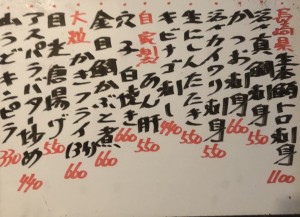 長崎県 生本鮪トロ刺身 1100
真鯛刺身 550
かつお刺身 660
活〆カワハギ刺身 550
生にしんたたき 550
キビナゴ刺し 440
自家製 あん肝 550
穴子白焼き 660
金目鯛かぶと煮 660
大粒 カキフライ(3コ) 660
目光唐揚げ 550
アスパラバター炒め 440
山うどキンピラ 330